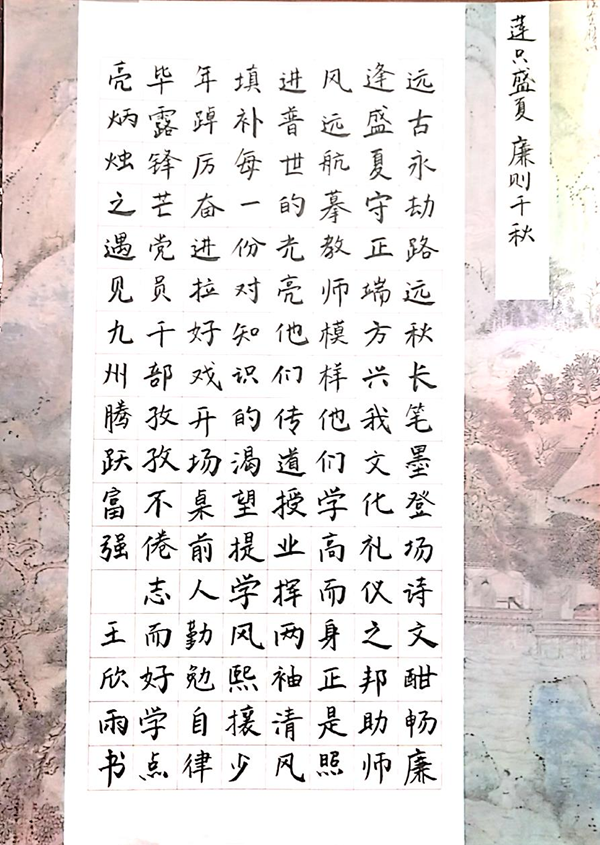 莲只盛夏 廉则千秋
远古永劫路远秋长笔墨登场诗文酣畅廉
逢盛夏守正端方兴我文化礼仪之邦助师
风远航摹教师模样他们学高而身正是照
进普世的光亮他们传道授业挥两袖清风
填补每一份对知识的渴望提学风熙攘少
年踔厉奋进拉好戏开场桌前人勤勉自律
毕露锋芒党员干部孜孜不倦志而好学点
亮炳烛之遇见九州腾跃富强 王欣雨书